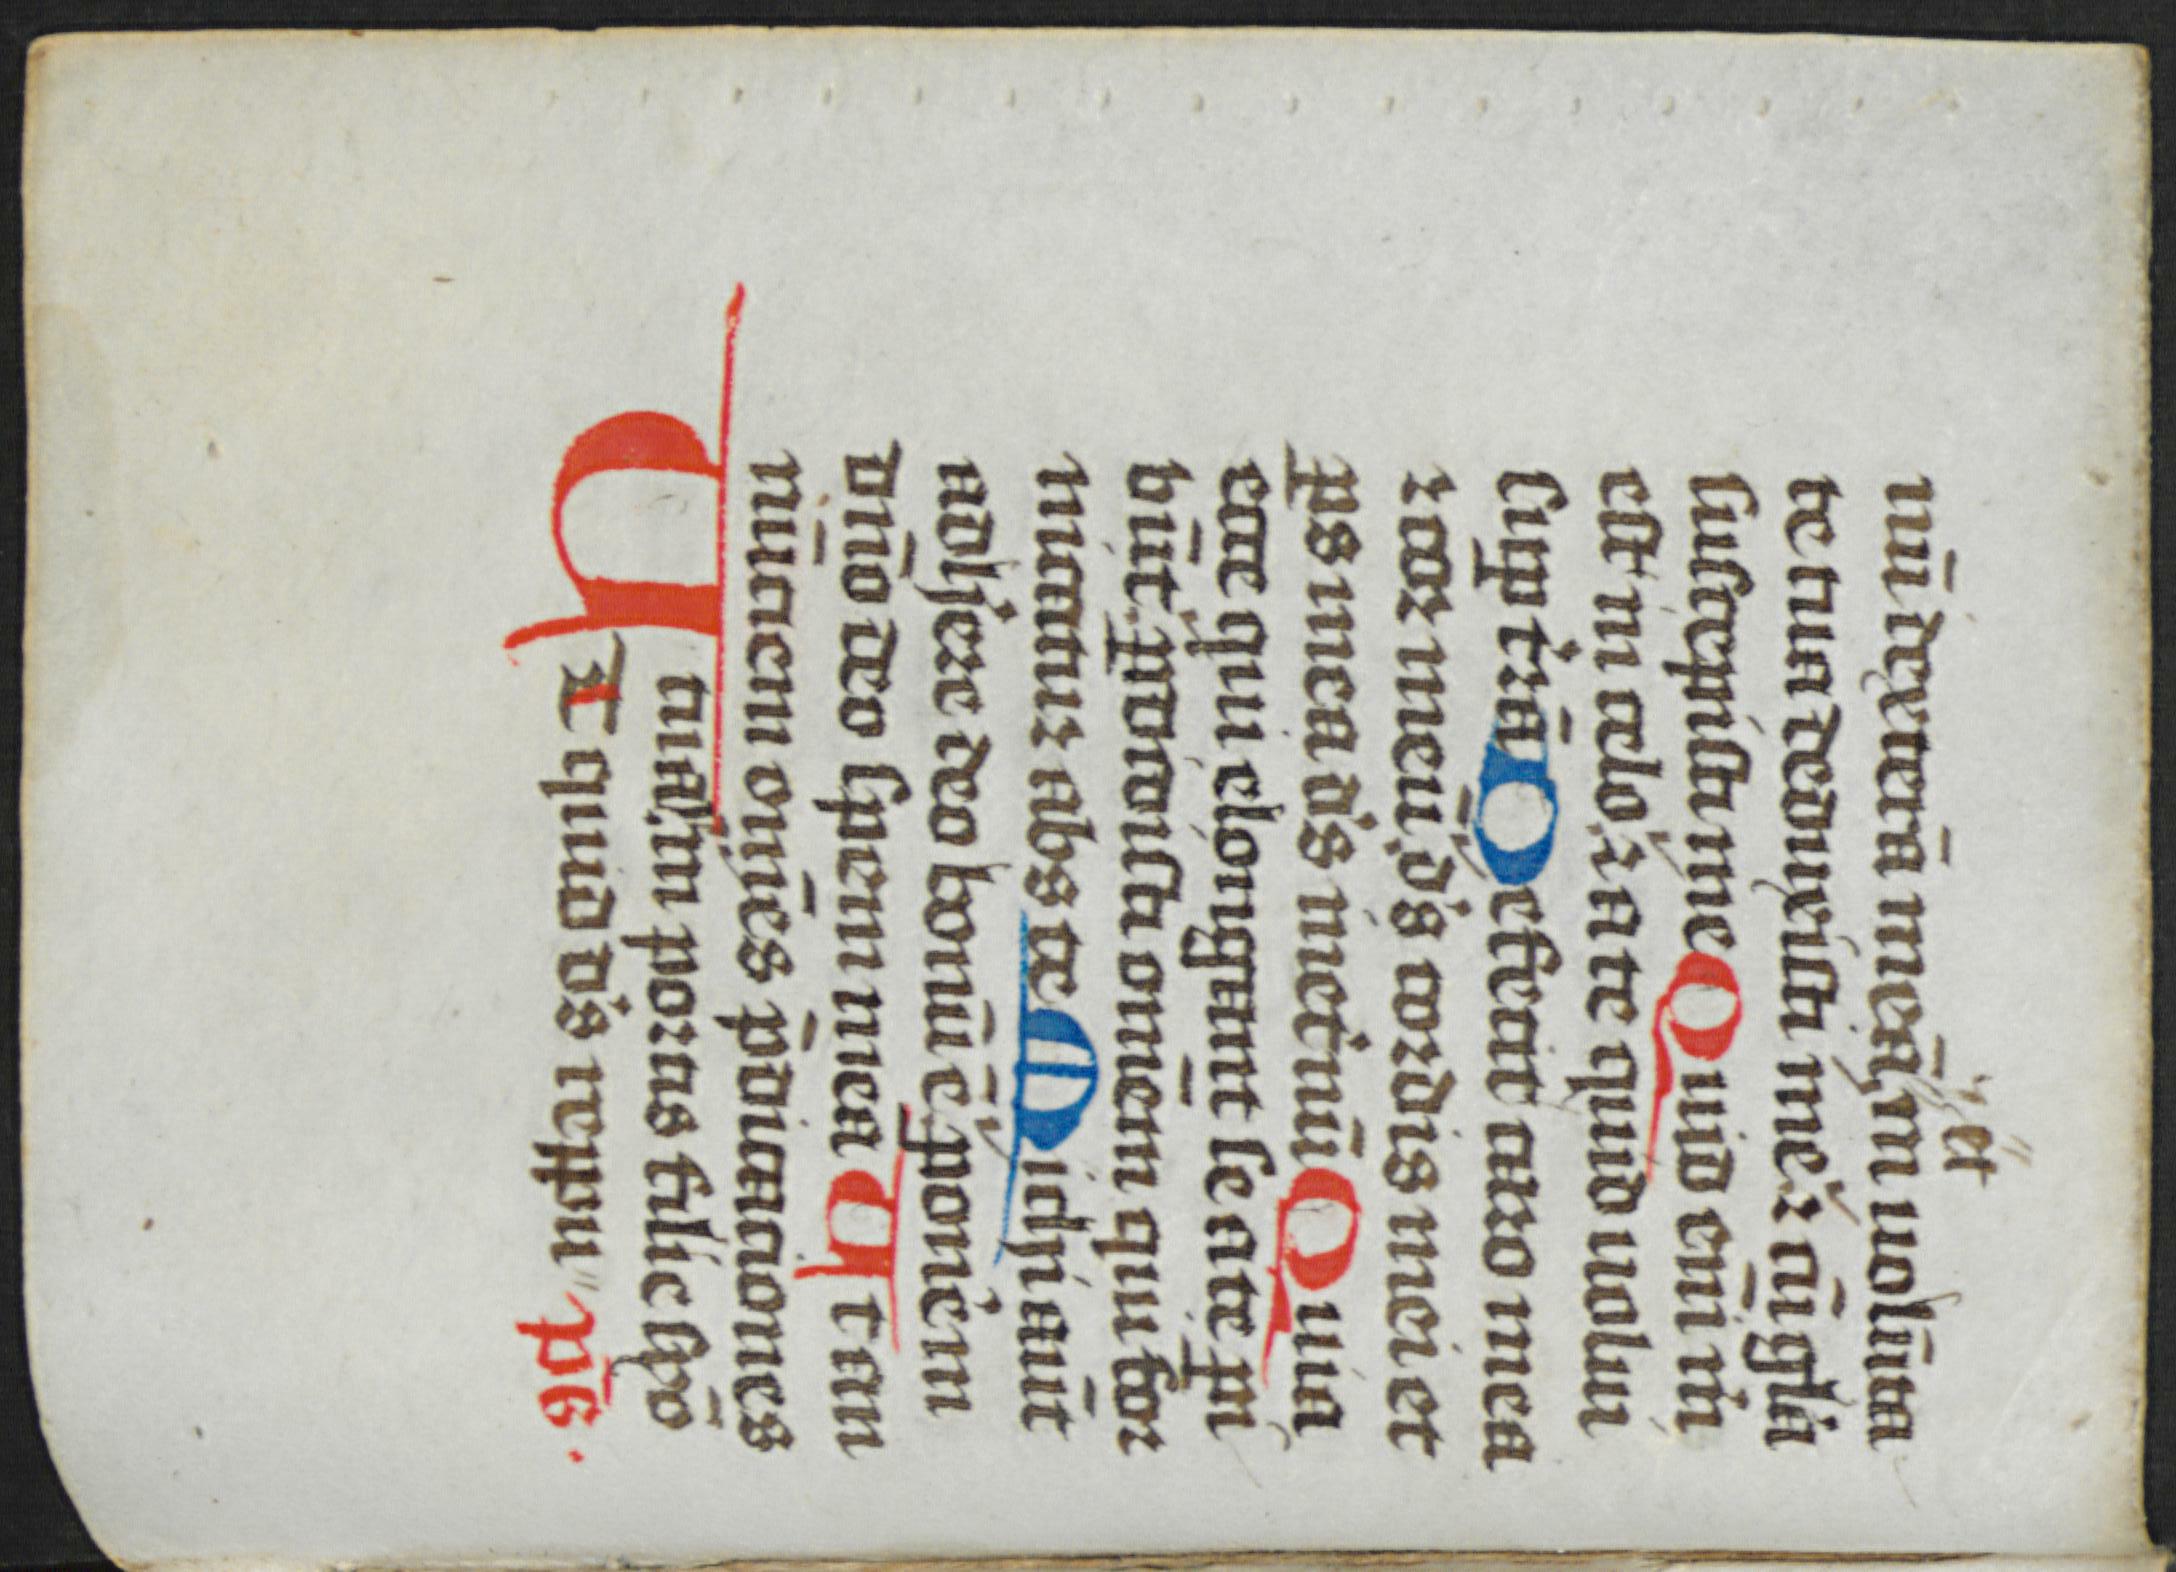 et
nū dexterā meā in uolūta
te tua deduxisti me ⁊ cū glia
suscepisti me Quid enī m
est in celo ⁊ a te quid uolui
sup trā Defecit caro mea
⁊ cor meū ds cordis mei et
ps mea ds inetnū Quia
ecce qui elongant se a te pi
būt pdidisti omnem qui for
nicantur abs te Michi aūt
adherere deo bonū ē ponere in
dno deo spem mea Ut an
nūciem omēs pdicationes
tuas in portas filie syō
Ut quid ds reppu ps